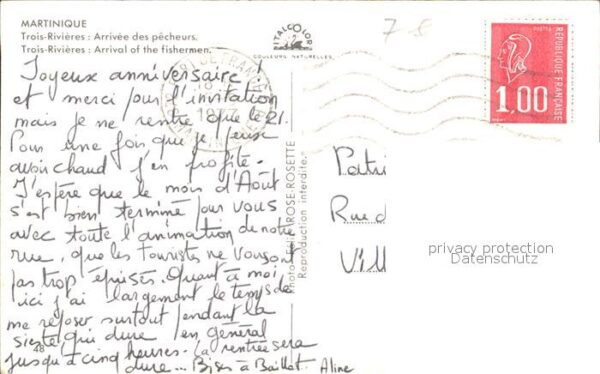 MARTINIQUE
Trois-Rivières : Arrivée des pêcheurs.
Trois-Rivières : Arrival of the fishermen.
COULEURS NATURELLES
7-8
RÉPUBLIQUE FRANÇAISE
1,00
FORT DE FRANCE
Joyeux anniversaire !
et merci pour l'invitation
mais je ne rentre que le 21.
Pour une fois que je peux
avoir chaud j'en profite.
J'espère que le mois d'Août
s'est bien terminé pour vous
avec toute l'animation de notre
rue, que les touristes ne vous ont
pas trop épuisés. Quant à moi
ici j'ai largement le temps de
me reposer surtout pendant la
sieste qui dure en général
jusqu'à cinq heures. La rentrée sera
dure... Bises à Baillot. Aline
48
ROSE-ROSETTE
Reproduction interdite.
Patri
Rue d
Vill
privacy protection
Datenschutz